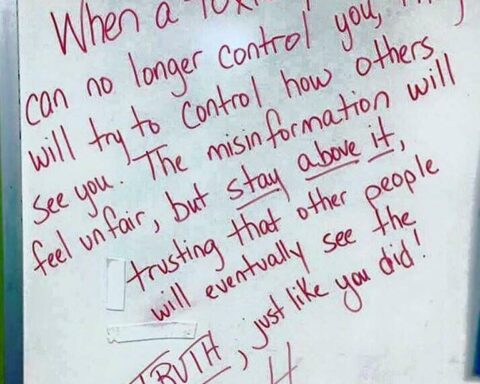 When a
can no longer control you,
will try to control how others
see you. The misinformation will
feel unfair, but stay above it,
trusting that other people
will eventually see the
TRUTH, just like you did!